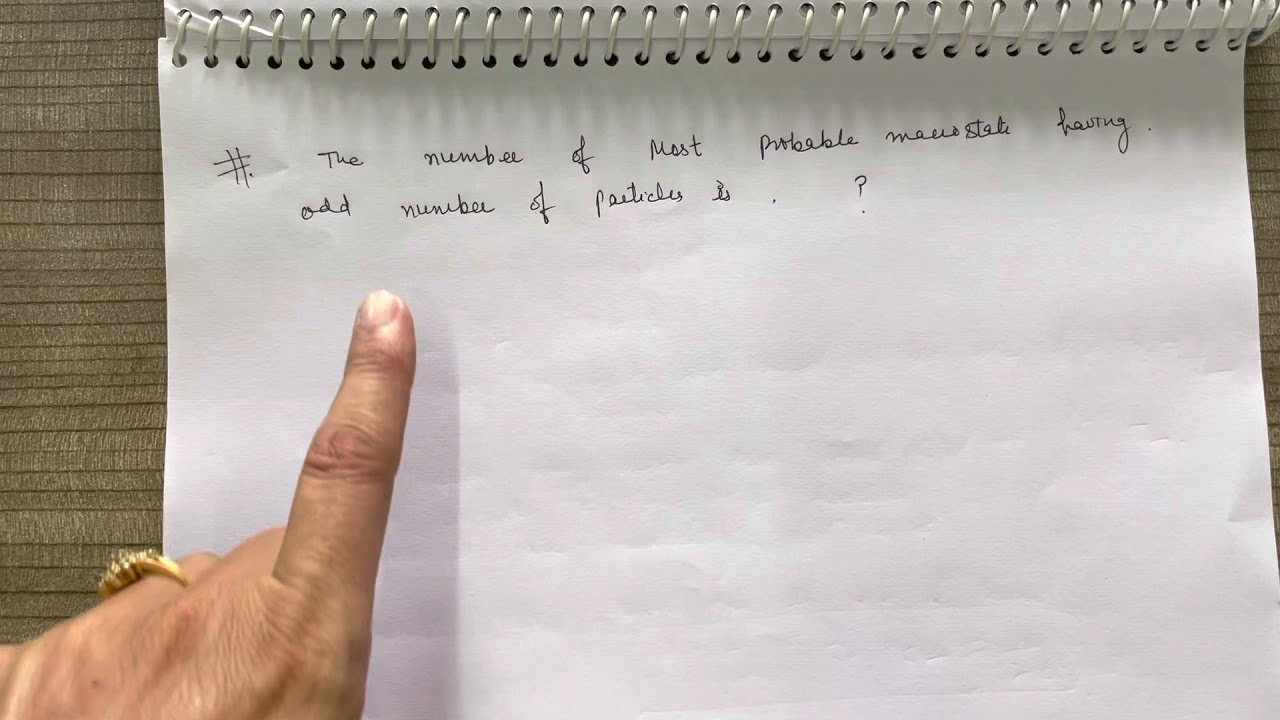 #. The number of Most Probable macrostate having.
odd number of particles is . ?